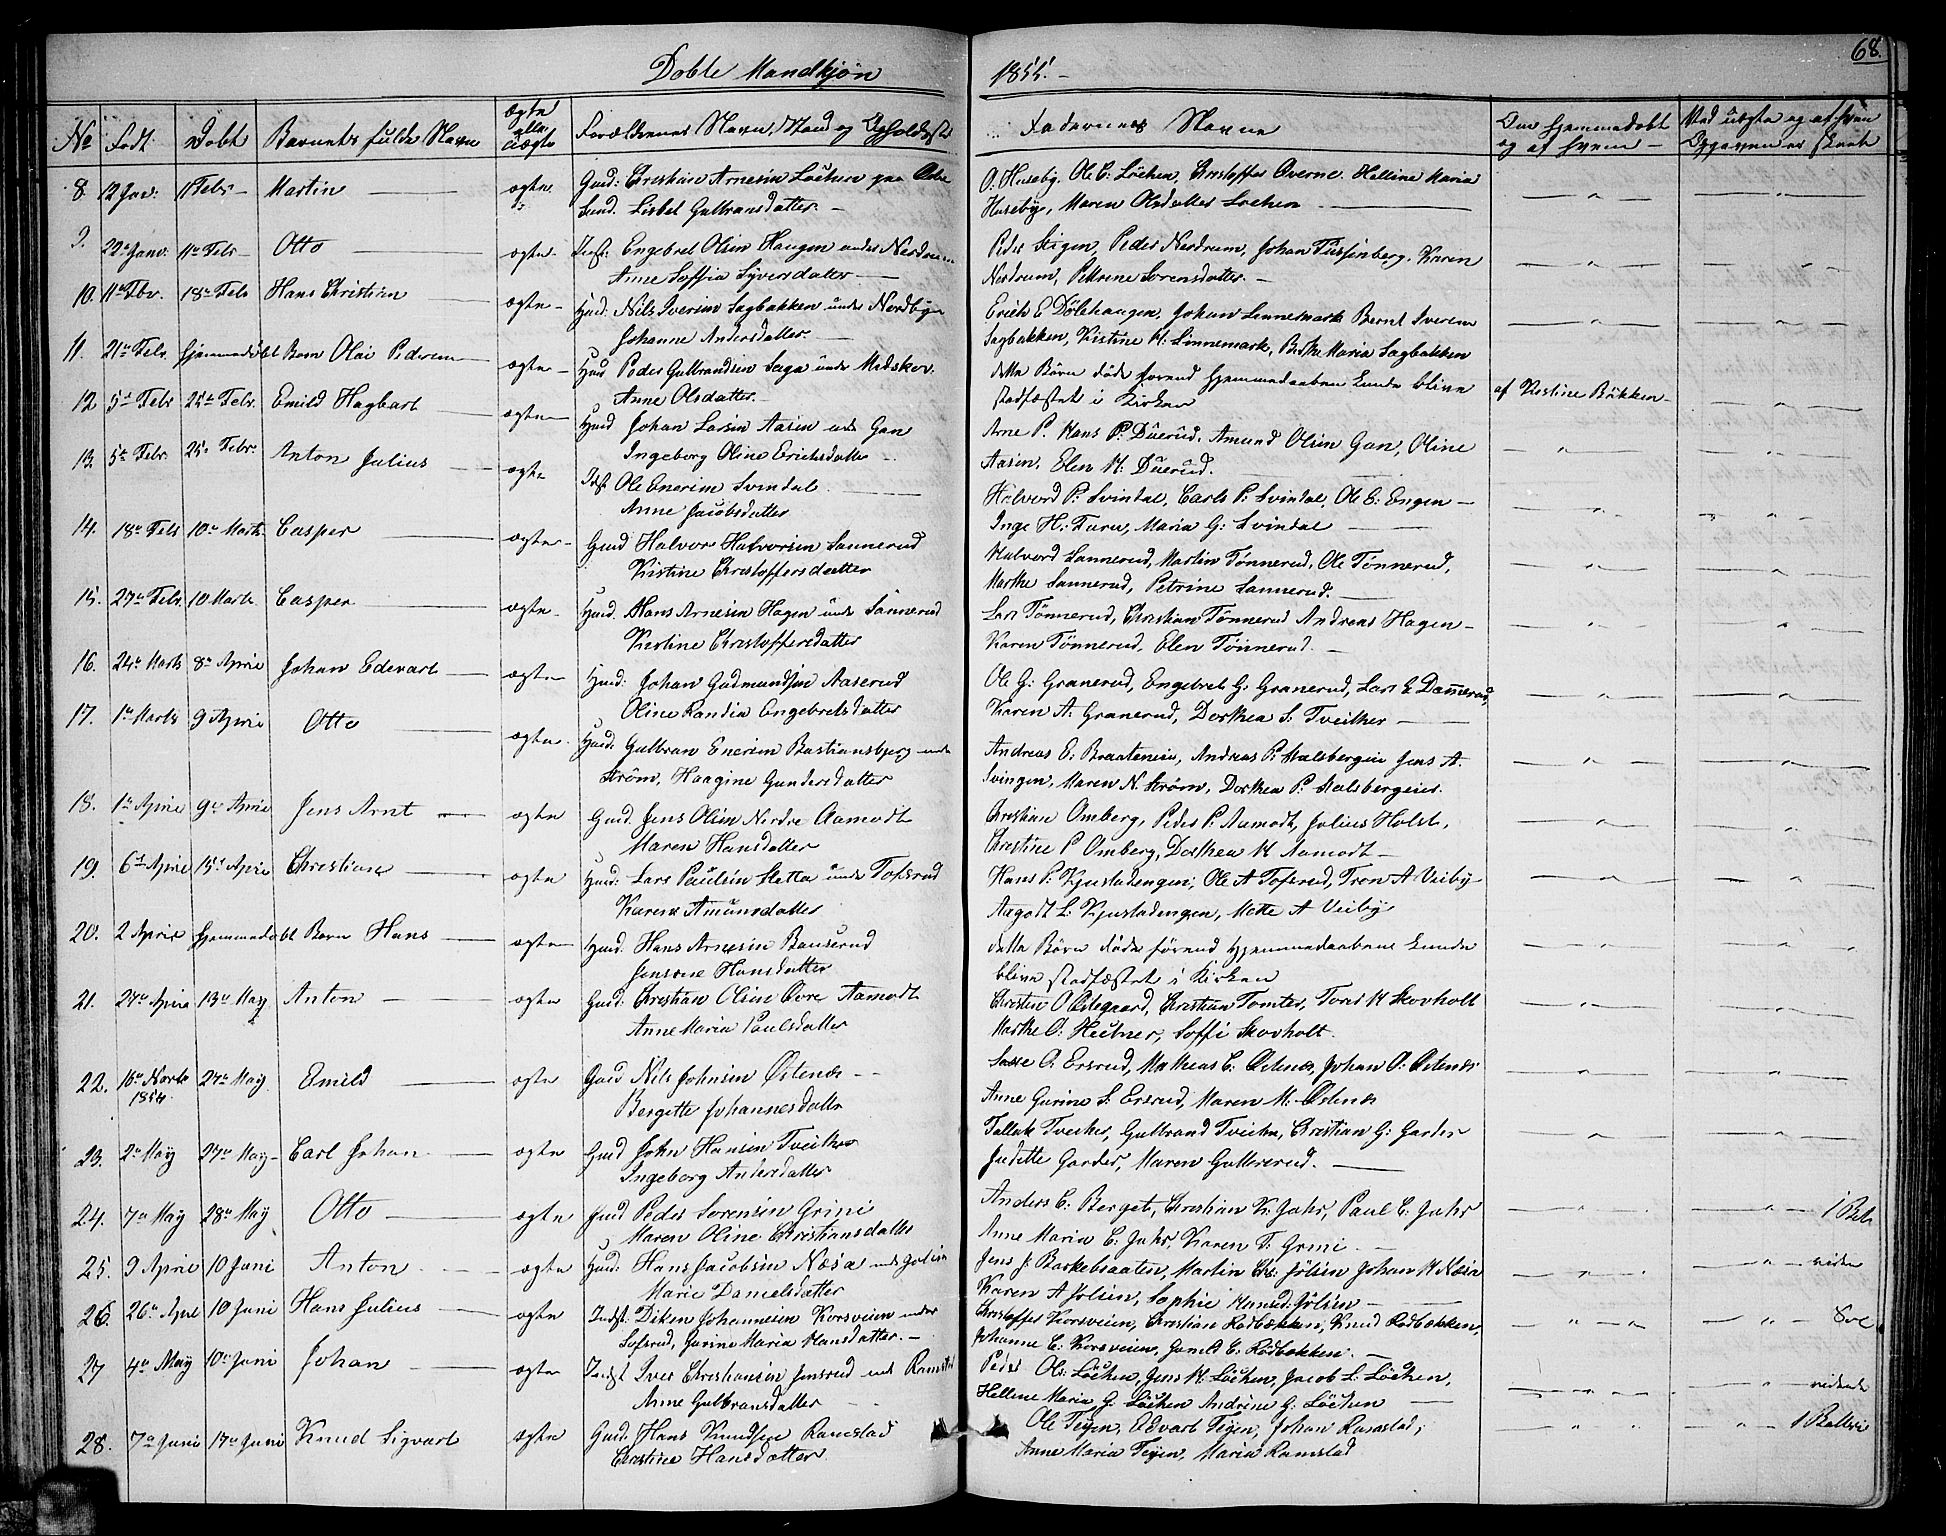 Døbte Mandkjøn 1855.
68.
No Født Døbt Barnets fulde Navn ægte eller uægte Forældrenes Navn, Stand og Opholdsst Faddernes Navne Om hjemmedøbt og af hvem Ved uægte og af hvem Opgaven er skeet
8. 12 Jan: 11 Febr Martin ægte Gmd: Christian Arnesen Löchen paa O. Huseby, Ole C: Löchen, Christoffer Overne, Helline Maria
Lisbet Gulbransdatter. Huseby, Maren Olsdatter Lochen
9. 22 Janv. 11 Febr Otto ægte Engebret Olsen Haugen under Nordrum Peder Stigen, Peder Nordrum, Johan Tussenberg, Karen
Anne Soffia Syversdatter Nordrum, Petrine Sorensdatter.
10. 11 Fbv. 18 Feb Hans Christian ægte Huusd: Nils Iversen Sagbakken under Nordbye Erich E Dølehaugen, Johan Linnemark Bernt Iversen
Johanne Andersdatter. Sagbakken, Kistine H: Linnemark, Berthe Maria Sagbakken
11. 21 Febr. hjemmedøbt Barn Olai Pedersen ægte Huus Peder Gulbrandsen Saga under Midskov. dette Barn døde førend hjemmedaaben kunde blive af Kistine Bakken
Anne Olsdatter. stadfæstet i Kirken
12 5 Febr 25 Febr. Emild Hagbart ægte Huusd Johan Larsen Aasen under Gan Arne P. Hans P. Duerud, Amund Olsen Gan, Oline
Ingeborg Oline Erichsdatter Aasen, Elen H: Duerud.
13. 5 Febr. 25 Febr. Anton Julius ægte Indst Ole Enersen Svindal Halvord P: Svindal, Carls P: Svindal, Ole E: Engen
Anne Jacobsdatter Inge H: Furu, Maria G: Svindal
14. 18 Feb 10 Marts Casper ægte Gmd Halvor Halvorsen Sannerud Halvord Sannerud, Martin Tønnerud, Ole Tønnerud,
Kistine Christoffersdatter Marthe Sannerud, Petrine Sannerud.
15. 27 Febr. 10 Marts Casper ægte Huusd. Hans Arnesen Hagen under Sannerud Lars Tønnerud, Christian Tønnerud Andreas Hagen
Kirstine Christoffersdatter Karen Tønnerud, Elen Tønnerud.
16. 24 Marts 8 April Johan Edevart ægte Huusd: Johan Gudmundsen Aaserud Ole G: Granerud, Engebret G: Granerud, Lars E Dannerud,
Oline Randia Engebretsdatter Karen A: Granerud, Dorthea S: Tveither
17. 1 Marts 9 April Otto ægte Huusd: Gulbran Enersen Bastiansbjerg under Andreas E: Braatenien, Andreas P: Malsbergeie Jens A.
Strøm, Haagine Gundersdatter Svingen, Maren N. Strøm, Dorthea P: Malsbergeie.
18. 1 April 9 April Jens Arnt ægte Gmd. Jens Olsen Nordre Aamodt Christian Omberg, Peder P. Aamodt, Julius Holst,
Maren Hansdatter Christine P Omberg, Dorthea H Aamodt
19. 6 April 15 April Christian ægte Huusd: Lars Paulsen Sletta under Tofsrud Hans P: Kjustadengen, Ole A Tofsrud, Tron A Veiby
Karen Amunsdatter Aagodt L: Kjustadengen, Mette A Veiby
20. 2 April hjemmedøbt Barn Hans ægte Huusd. Hans Arnesen Bauserud dette Barn døde førend hjemmedaaben kunde
Jensine Hansdatter blive stadfæstet i Kirken
21. 27 April 13 May Anton ægte Gmd: Christian Olsen Øvre Aamodt Christen O Ødegaard, Christian Tomter, Tores H Skovholt
Anne Maria Paulsdatter Marthe O: Heubner, Soffi Skovholt.
22. 16 Novbr 1854 27 May Emild ægte Gmd Nils Johnsen Østenes Lasse O: Ersrud, Mathias C: Østenes, Johan O: Østenes
Bergette Johannesdatter Anne Gurine S: Ersrud, Maren M: Østenes
23. 2 May 27 May Carl Johan ægte Gmd John Hansen Tveither Tallak Tveiter, Gulbrand Tveiter, Christian G: Garder
Ingeborg Andersdatter Judithe Garder, Maren Gulliksrud.
24. 7 May 28 May Otto ægte Gmd Peder Sorensen Grini Anders C: Berget, Christian K: Juhr, Paul C: Juhr 1 Bet
Maren Oline Christiansdatter Anne Maria C: Juhr, Karen T: Grini
25. 9 April 10 Juni Anton ægte Huusd: Hans Jacobsen Næsa under Jølsen Jens J: Barkebraaten, Martin Chr: Jölsen Johan H Næsa
Marie Danielsdatter Karen A Jölsen, Sophie Hansd: Jölsen
26. 26 April 10 Juni Hans Julius ægte Indst: Diken Johannesen Korsveien under Christoffer Korsveien, Christian Rodbakken, Knud Rodbakken,
Sofsrud, Gurine Maria Hansdatter. Johanne C: Korsveien, Gunild E: Rodbakken.
27 4 May 10 Juni Johan ægte Indst Iver Christiansen Jensrud under Ramstad Peder Ols: Löchen, Jens H: Löchen, Jacob L: Löchen,
Anne Gulbransdatter Helline Maria G: Löchen Andrine G: Löchen
28. 7 Juni 17 Juni Knud Sigvart ægte Gmd: Hans Knudsen Ramstad Ole Teijen, Edvart Teijen, Johan Ramstad,
Christine Hansdatter Anne Maria Teijen, Maria Ramstad